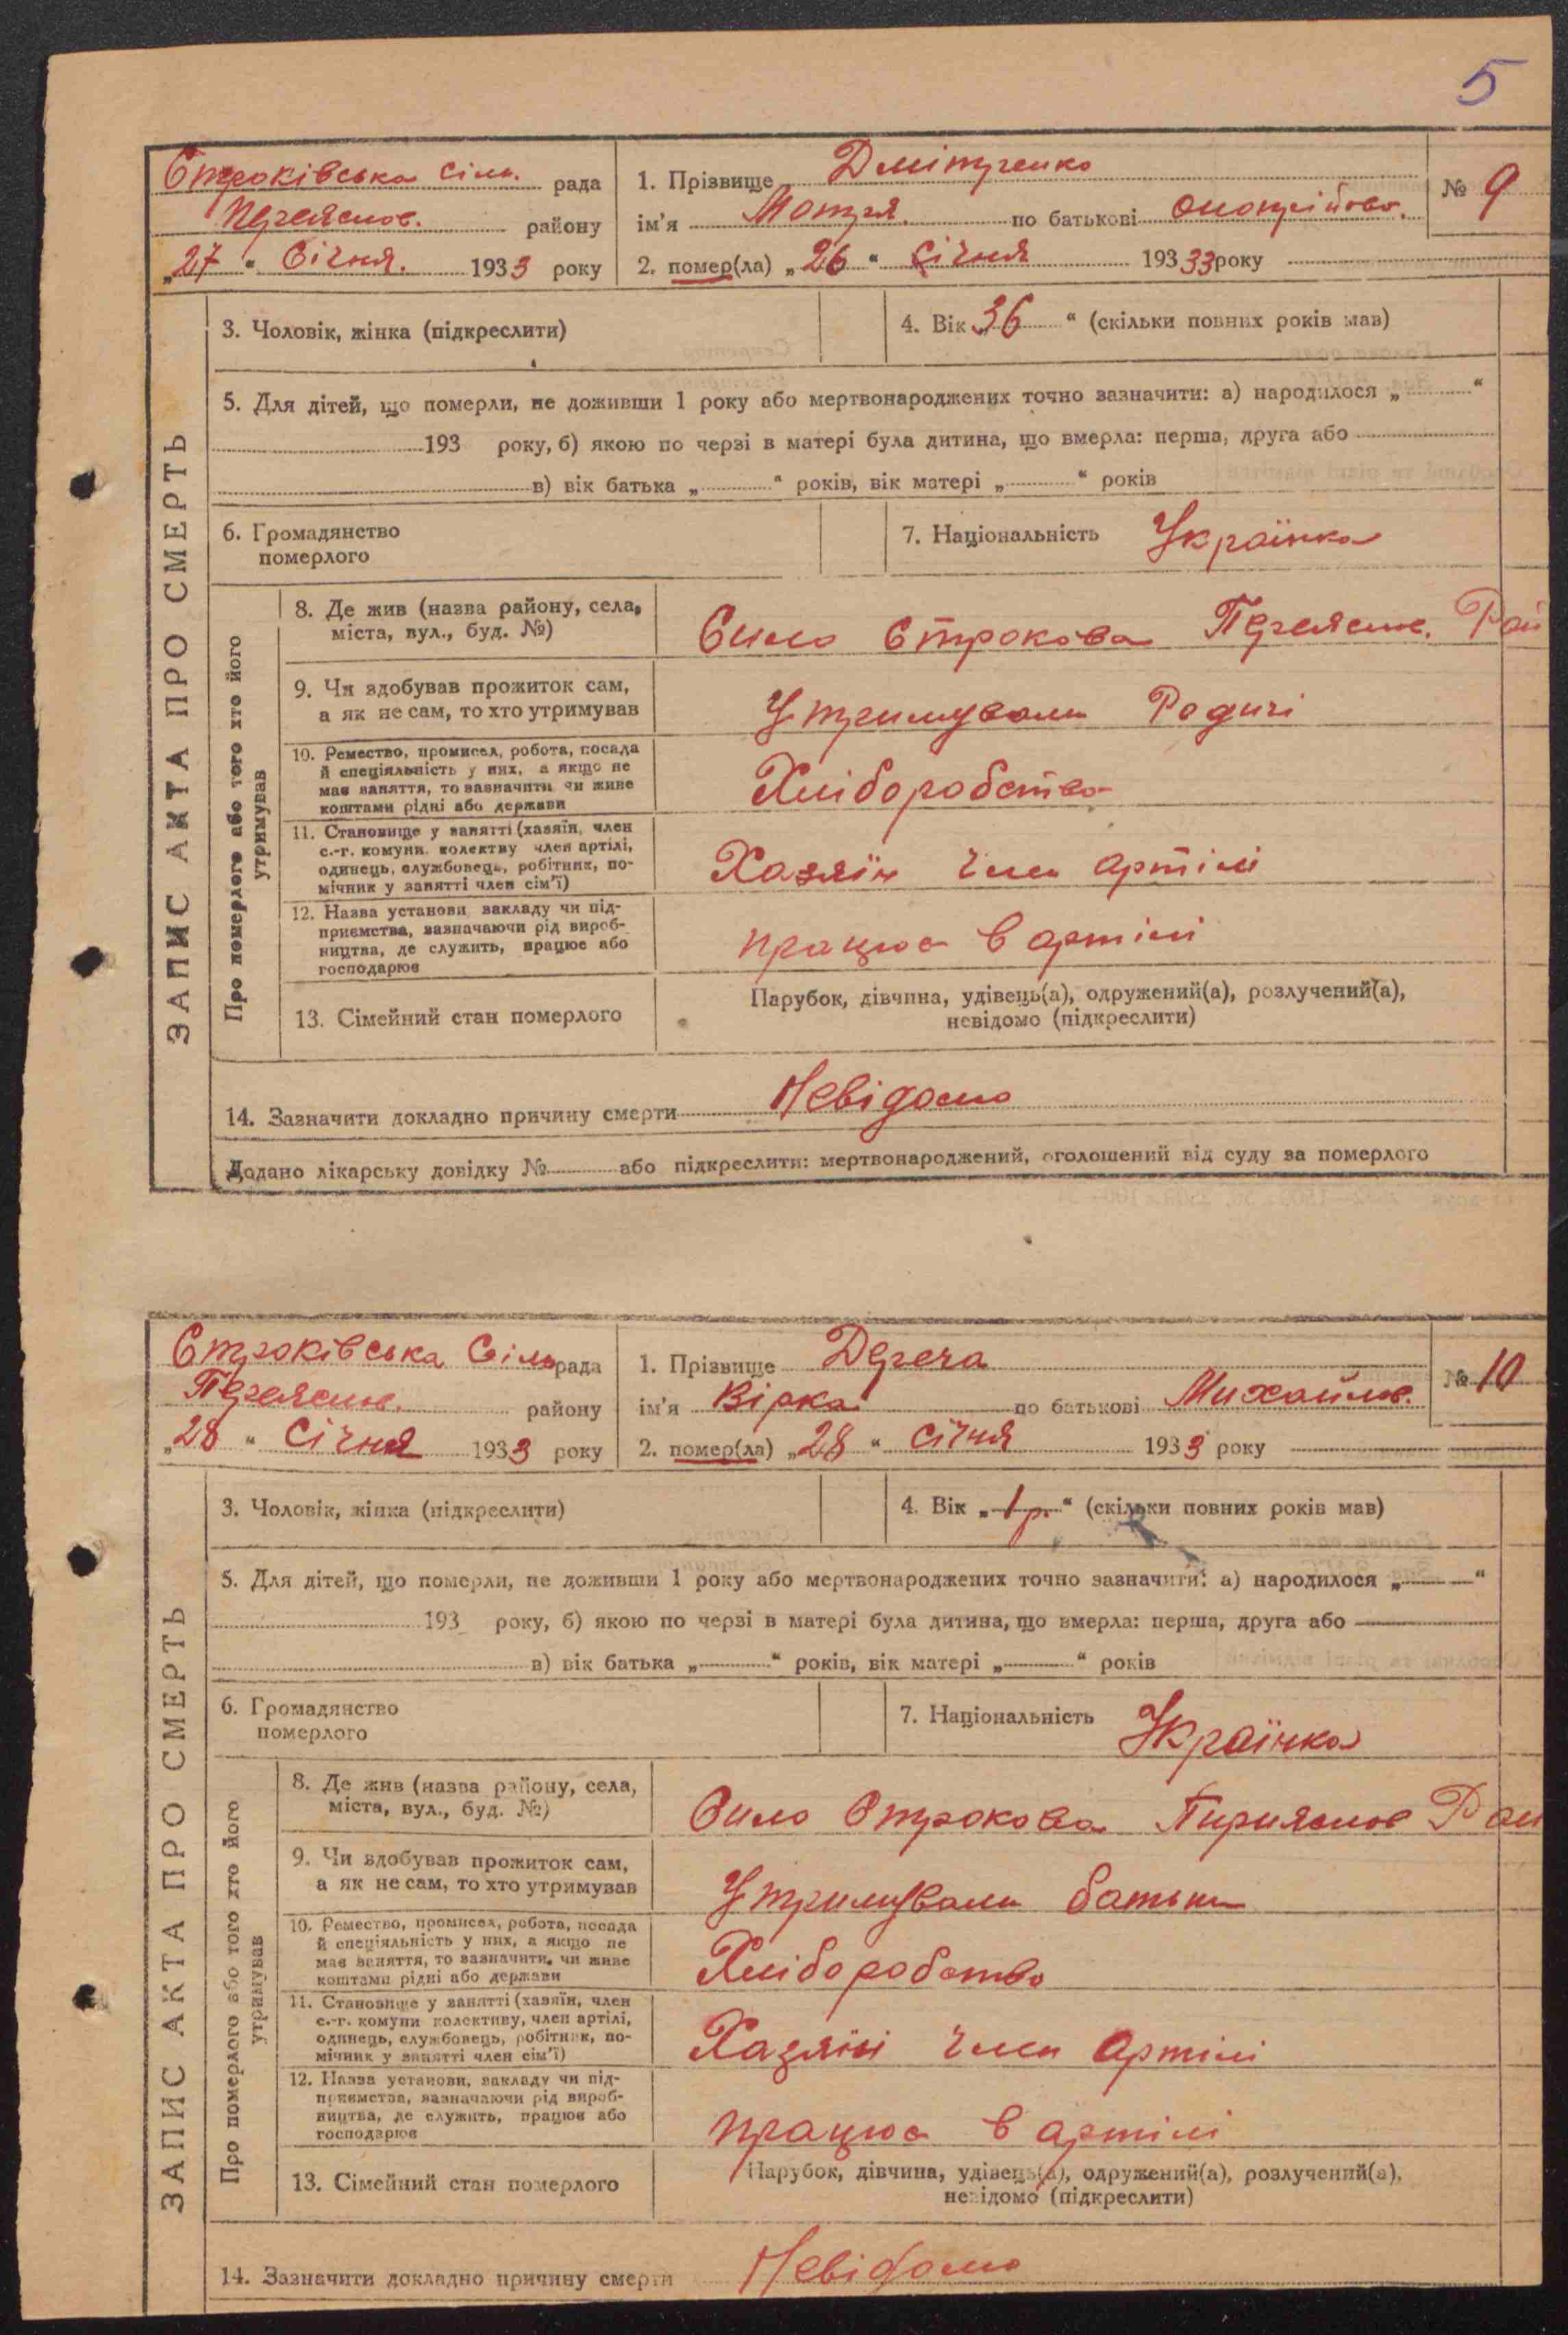 5
Строківська сіль. рада
Переяслов. району
„27“ Січня. 1933 року
1. Прізвище Дмітренко
ім'я Мотря. по батькові Оноприйовн.
2. помер(ла) „26“ Січня 193 33 року
№ 9
ЗАПИС АКТА ПРО СМЕРТЬ
3. Чоловік, жінка (підкреслити)
4. Вік „36“ (скільки повних років мав)
5. Для дітей, що померли, не доживши 1 року або мертвонароджених точно зазначити: а) народилося „ “
193 року, б) якою по черзі в матері була дитина, що вмерла: перша, друга або
в) вік батька „ “ років, вік матері „ “ років
6. Громадянство
померлого
7. Національність Українка
Про померлого або того хто його
утримував
8. Де жив (назва району, села,
міста, вул., буд. №)
Сило Строкова Переяслов. Рай
9. Чи здобував прожиток сам,
а як не сам, то хто утримував
Утримували Родичі
10. Ремество, промисел, робота, посада
й спеціяльність у них, а якщо не
має заняття, то зазначити чи живе
коштами рідні або держави
Хліборобство
11. Становище у занятті (хазяїн, член
с.-г. комуни, колективу член артілі,
одинець, службовець, робітник, по-
мічник у занятті член сім'ї)
Хазяїн член артілі
12. Назва установи, закладу чи під-
приємства, зазначаючи рід вироб-
ництва, де служить, працює або
господарює
працює в артілі
13. Сімейний стан померлого
Парубок, дівчина, удівець(а), одружений(а), розлучений(а),
невідомо (підкреслити)
14. Зазначити докладно причину смерти Невідомо
Додано лікарську довідку № або підкреслити: мертвонароджений, оголошений від суду за померлого
Строківська Сіль рада
Переяслов. району
„28“ Січня 1933 року
1. Прізвище Дереча
ім'я Вірка по батькові Михайлов.
2. помер(ла) „28“ січня 1933 року
№ 10
ЗАПИС АКТА ПРО СМЕРТЬ
3. Чоловік, жінка (підкреслити)
4. Вік „1 р.“ (скільки повних років мав)
5. Для дітей, що померли, не доживши 1 року або мертвонароджених точно зазначити: а) народилося „ “
193 року, б) якою по черзі в матері була дитина, що вмерла: перша, друга або
в) вік батька „ “ років, вік матері „ “ років
6. Громадянство
померлого
7. Національність Українка
Про померлого або того хто його
утримував
8. Де жив (назва району, села,
міста, вул., буд. №)
Сило Строкова Пирияслов Рай
9. Чи здобував прожиток сам,
а як не сам, то хто утримував
Утримували батьки
10. Ремество, промисел, робота, посада
й спеціяльність у них, а якщо не
має заняття, то зазначити, чи живе
коштами рідні або держави
Хліборобство
11. Становище у занятті (хазяїн, член
с.-г. комуни колективу, член артілі,
одинець, службовець, робітник, по-
мічник у занятті член сім'ї)
Хазяїні член артілі
12. Назва установи, закладу чи під-
приємства, зазначаючи рід вироб-
ництва, де служить, працює або
господарює
працює в артілі
13. Сімейний стан померлого
Парубок, дівчина, удівець(а), одружений(а), розлучений(а),
невідомо (підкреслити)
14. Зазначити докладно причину смерти Невідомо